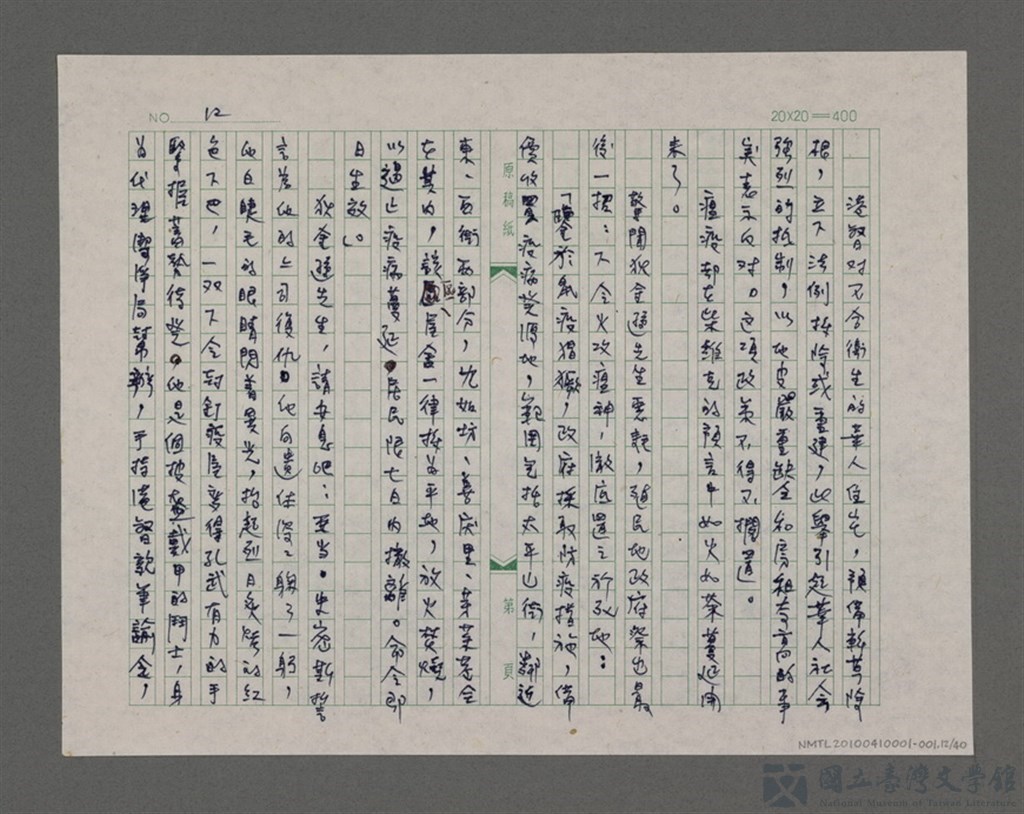 NO. 12
20X20=400
港督對不合衛生的華人住宅,預備斬草除
根,立下法例拆除或重建,此舉引起華人社会
強烈的抵制,以地皮嚴重缺乏和房租太高的事
実表示反对。這項政策不得不擱置。
瘟疫却在柴維克的預言中如火如荼蔓延開
來了。
驚聞狄金遜先生惡訊,殖民地政府祭出最
後一招:下令火攻瘟神,澈底置之於死地:
「鑒於鼠疫猖獗,政府採取防疫措施,備
價收買疫病發源地,範囲包括太平山街,鄰近
原稿紙
第 頁
東、西街西部分,九如坊、善庆里、芽菜巷全
在其内,該區屋舍一律拆為平地,放火焚燒,
以遏止疫病蔓延。居民限七日内撤離。命令即
日生效」。
狄金遜先生,請安息吧;亞当·史密斯誓
言为他的上司復仇。他向遺体深深躬了一躬,
他白睫毛的眼睛閃着異光,抬起烈日炙烤的紅
色下巴,一双下令封釘發屋變得孔武有力的手
緊握蓄勢待發。他是個披盔戴甲的鬥士,身
为代理潔淨局幫辦,手持港督親筆諭令,
NMTL20100410001-001.12/40
國立臺灣文學館
National Museum of Taiwan Literature